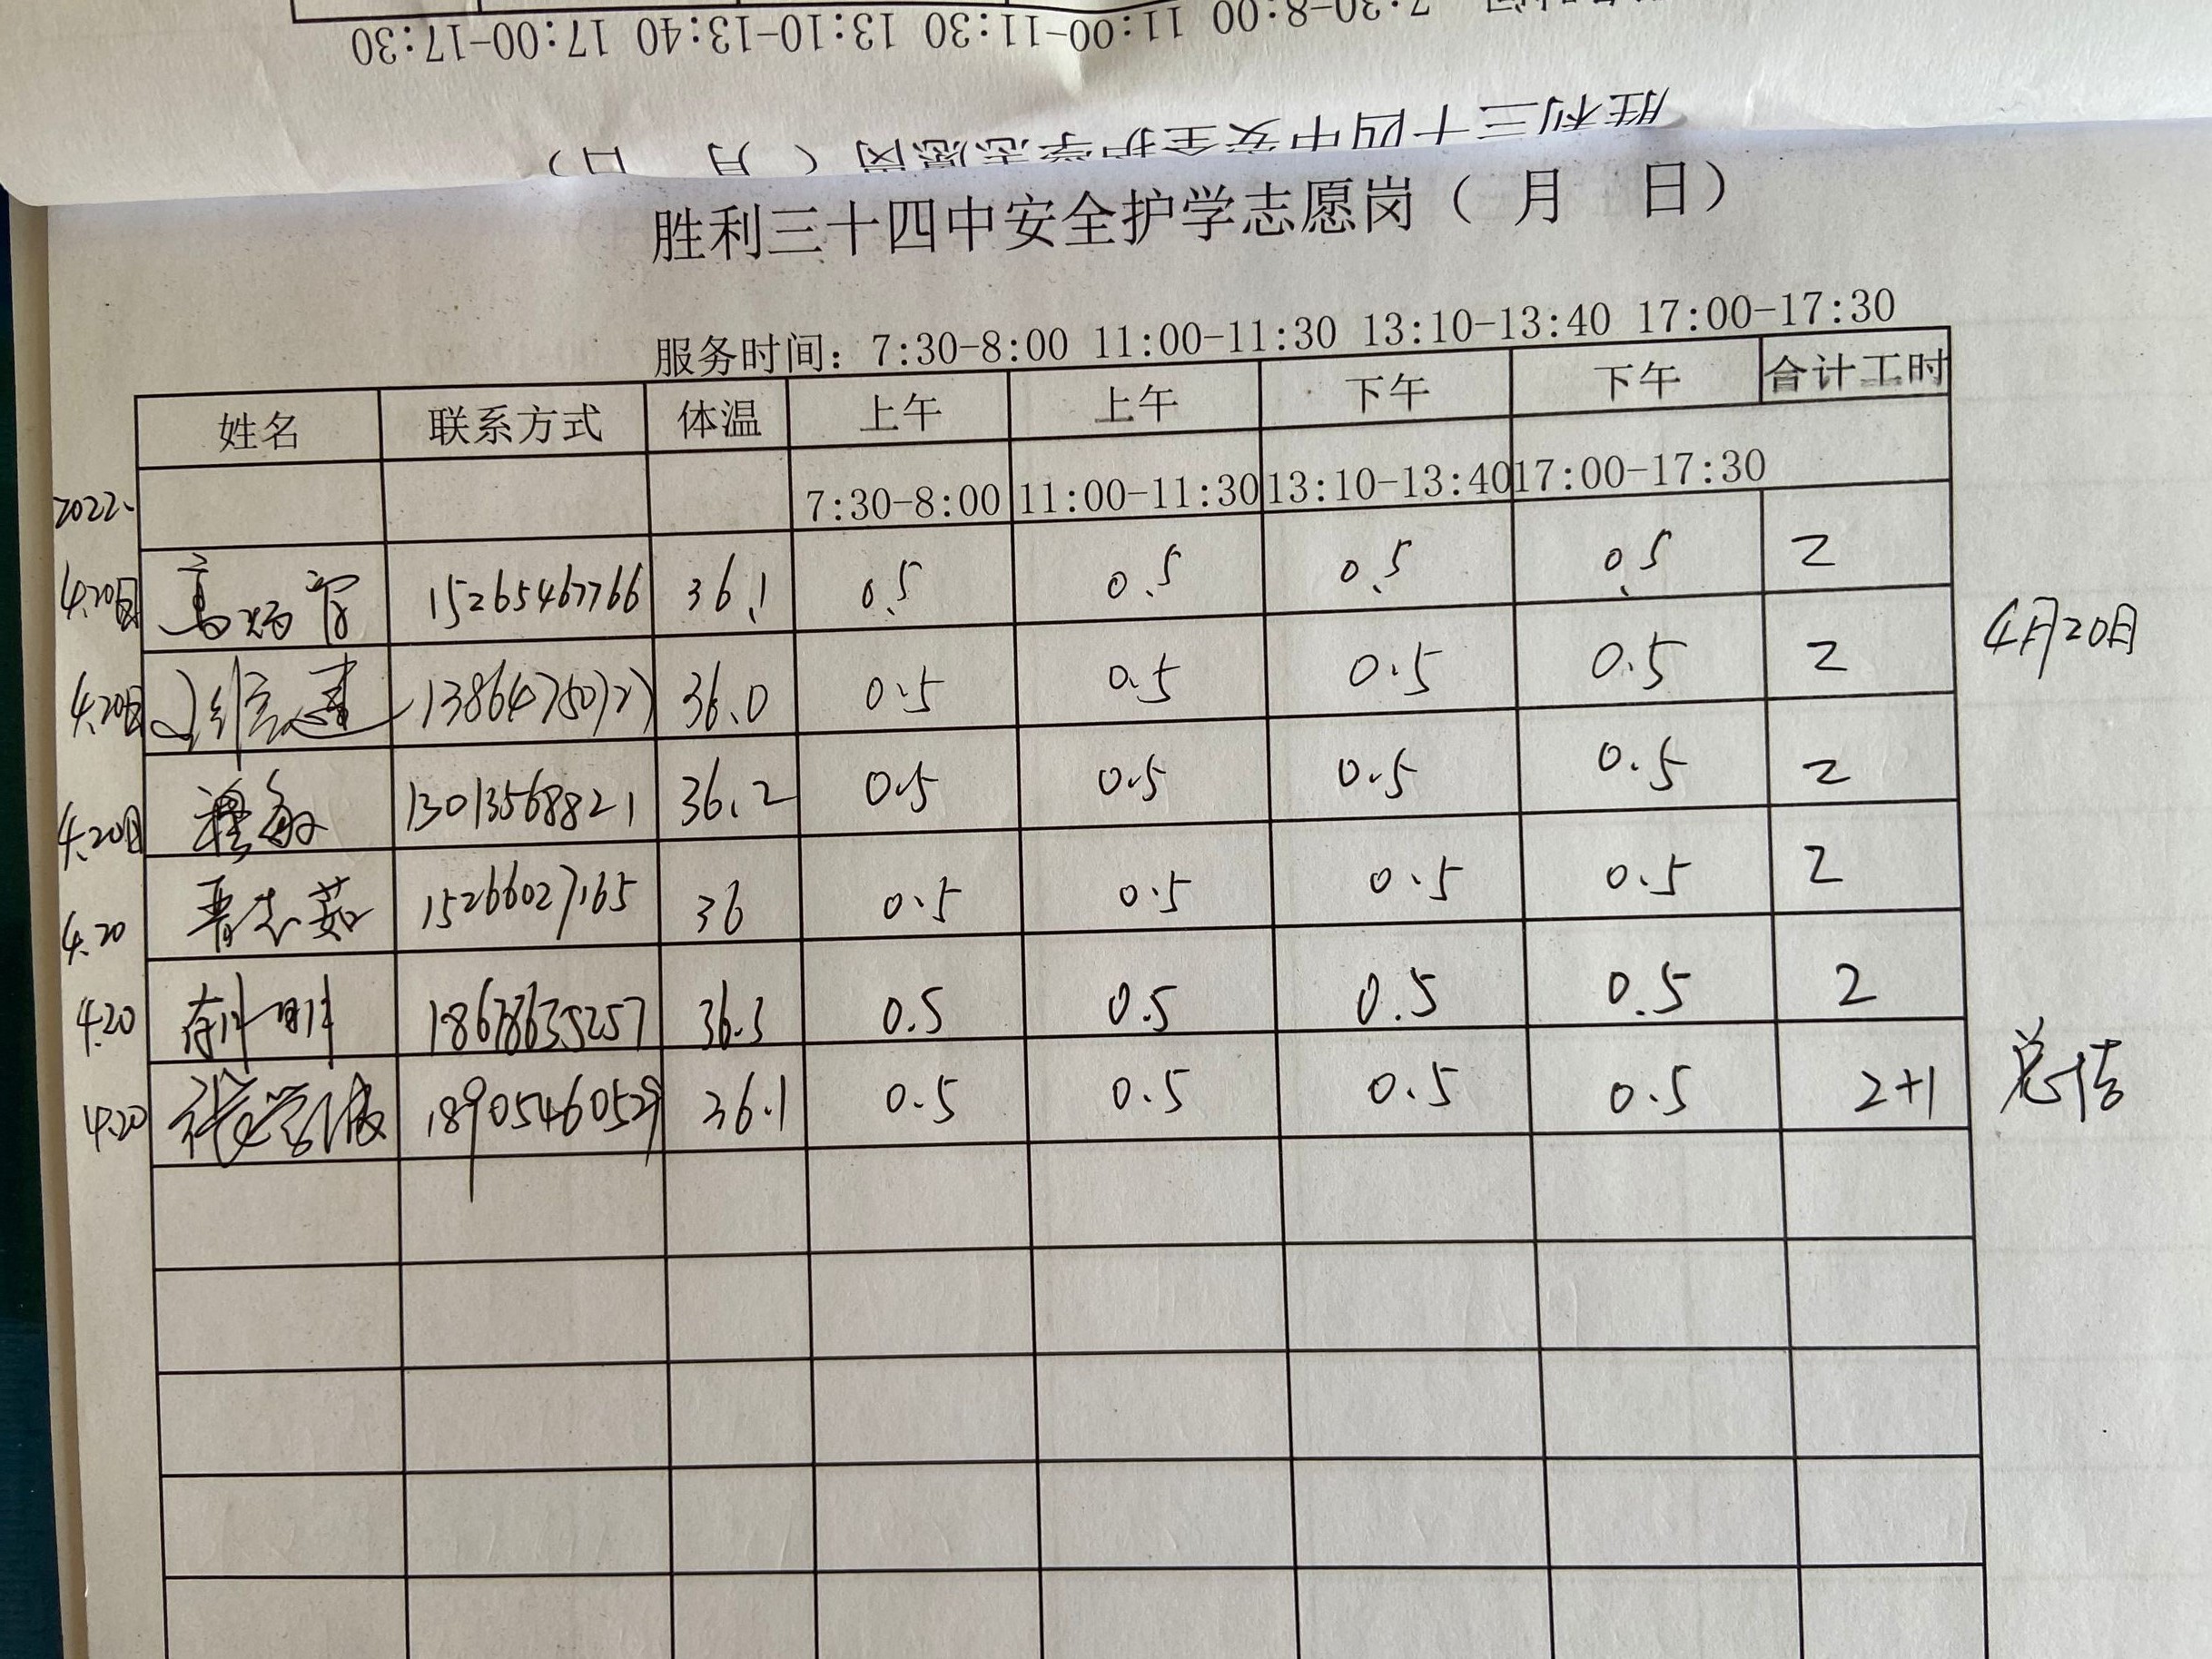 7:30-8:00 11:00-11:30 13:10-13:40 17:00-17:30
胜利三十四中安全护学志愿岗（ 月 日）
胜利三十四中安全护学志愿岗（ 月 日）
服务时间：7:30-8:00 11:00-11:30 13:10-13:40 17:00-17:30
姓名 联系方式 体温 上午 上午 下午 下午 合计工时
2022、 7:30-8:00 11:00-11:30 13:10-13:40 17:00-17:30
4.20日 高 15265467766 36.1 0.5 0.5 0.5 0.5 2
4月20日
4.20日 36.0 0.5 0.5 0.5 0.5 2
4.20日 穆敏 13013568821 36.2 0.5 0.5 0.5 0.5 2
4.20 晋志茹 15266027165 36 0.5 0.5 0.5 0.5 2
4.20 18678635257 36.3 0.5 0.5 0.5 0.5 2
4.20 张 18905460529 36.1 0.5 0.5 0.5 0.5 2+1 总结